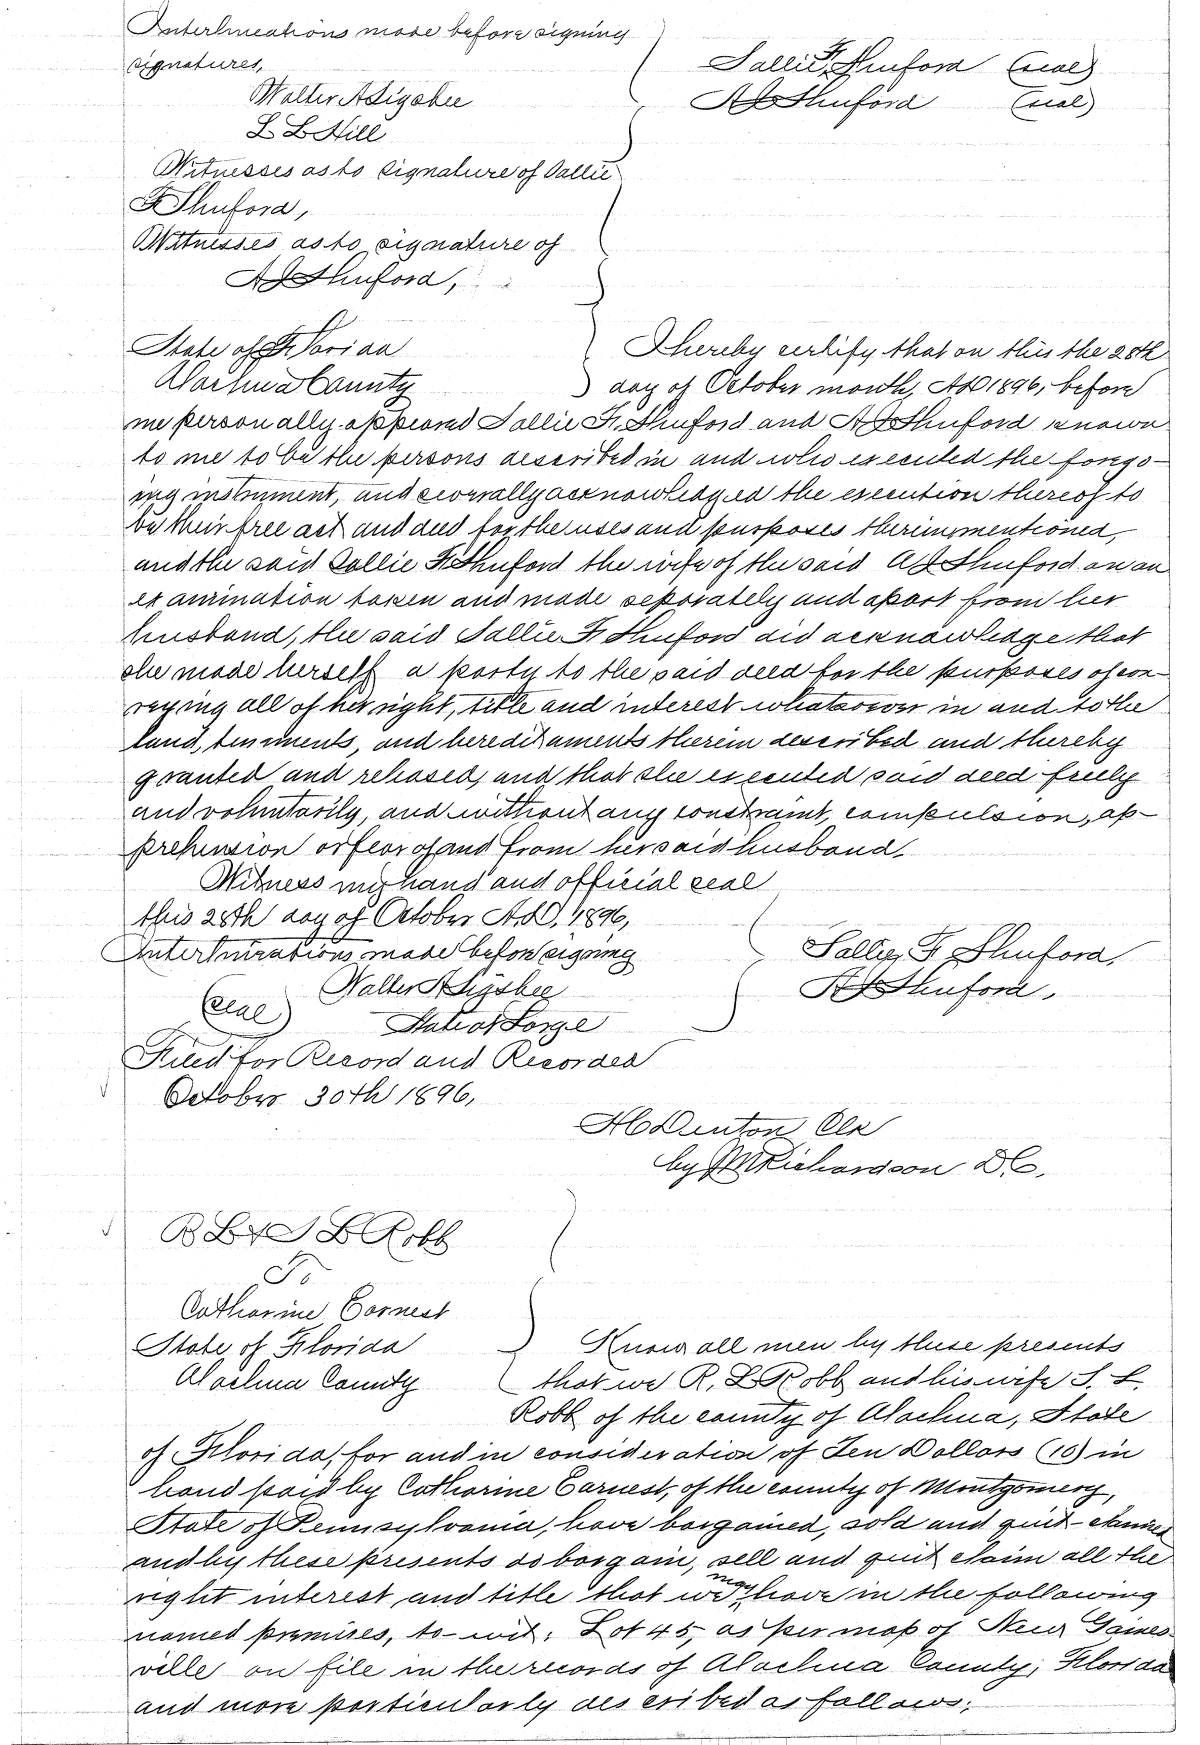 Interlineations made before signing
signatures,
Sallie F. Shuford (seal)
Walter A Sigsbee
A J Shuford (seal)
L L Hill
Witnesses as to signature of Sallie
F Shuford,
Witnesses as to signature of
A J Shuford,
State of Florida I hereby certify that on this the 28th
Alachua County day of October month, AD 1896, before
me personally appeared Sallie F. Shuford and A J Shuford known
to me to be the persons described in and who executed the forego-
ing instrument, and severally acknowledged the execution thereof to
be their free act and deed for the uses and purposes therin mentioned,
and the said Sallie F. Shuford the wife of the said A J Shuford on an
examination taken and made seperately and apart from her
husband, the said Sallie F Shuford did acknowledge that
she made herself a party to the said deed for the purposes of con-
veying all of her right, title and interest whatsoever in and to the
land, tenments, and hereditaments therein described and thereby
granted and released, and that she executed said deed freely
and voluntarily, and without any constraint, compulsion, ap-
prehension or fear of and from her said husband.
Witness my hand and official seal
this 28th day of October A.D. 1896,
Interlinirations made before signing
Sallie F Shuford,
Walter A Sigsbee
A J Shuford,
(seal)
State at Large
Filed for Record and Recorded
October 30th 1896,
H C Denton Clk
by J M Richardson D C,
R L & S L Robb
To
Catharine Earnest
State of Florida Know all men by these presents
Alachua County that we R. L Robb and his wife S. L.
Robb of the county of Alachua, State
of Florida, for and in consideration of Ten Dollars (10) in
hand paid by Catharine Earnest, of the county of Montgomery,
State of Pennsylvania, have bargained, sold and quit-claimed
and by these presents do bargain, sell and quit claim all the
right interest and title that we may have in the following
named premises, to-wit: Lot 45, as per map of New Gaines-
ville on file in the records of Alachua County, Florida
and more particularly described as follows: